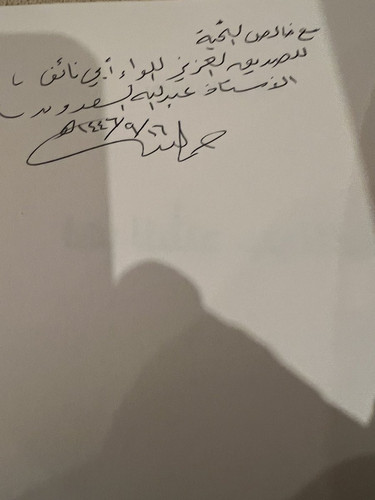 مع خالص التحية
للصديق العزيز اللواء أبي نائف
الأستاذ عبدالله السعدون
١٤٤٦/٩/١٦هـ